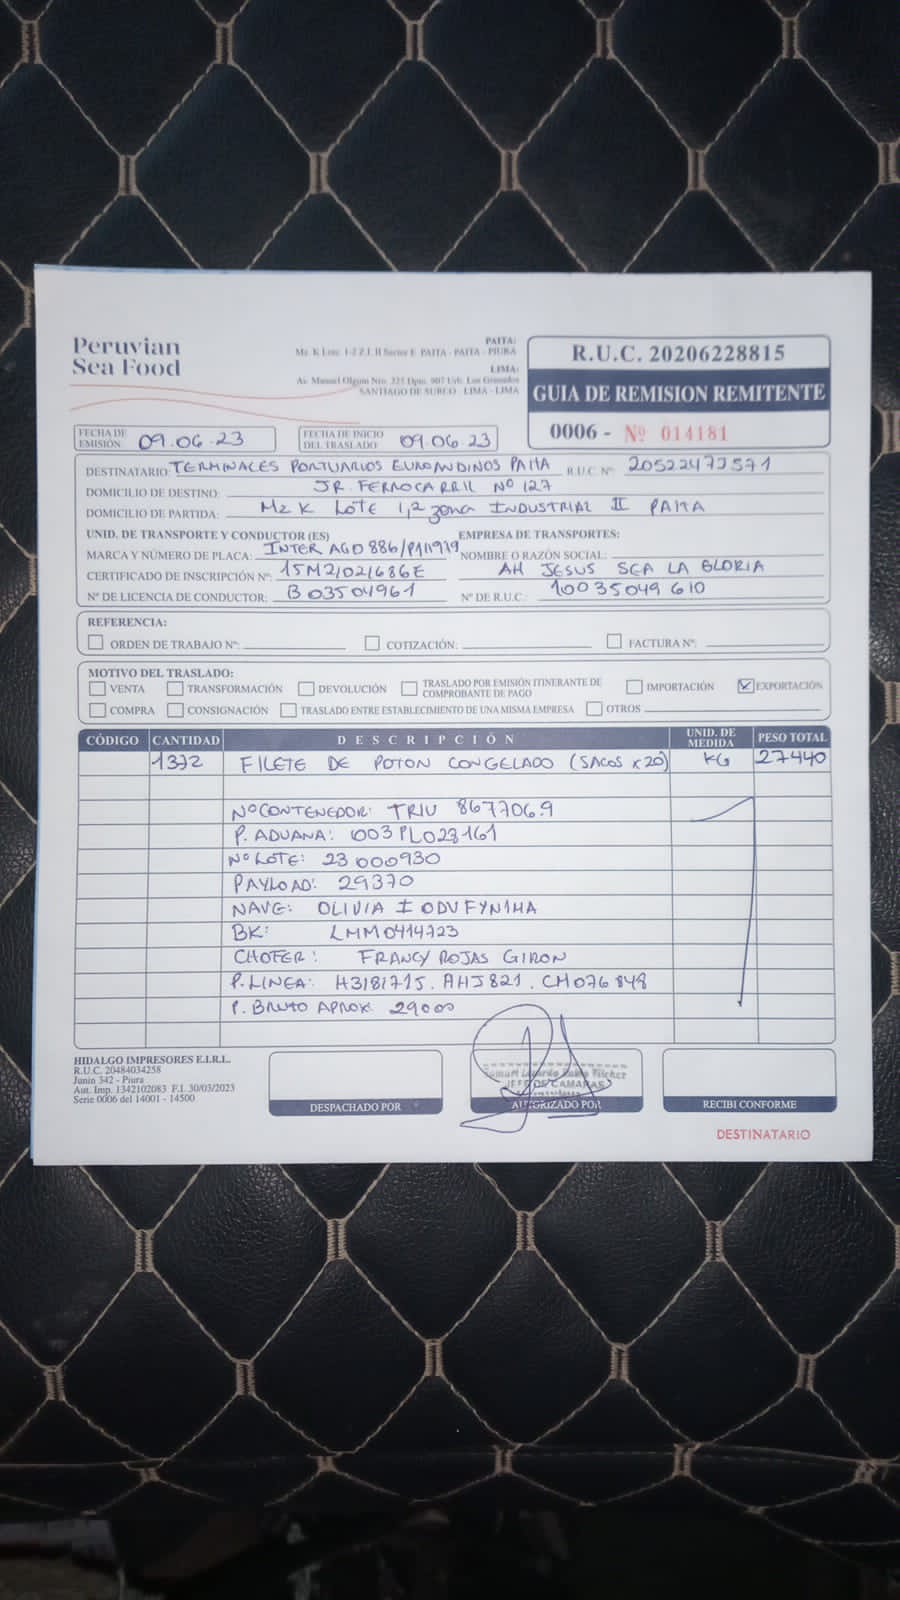 Peruvian
Sea Food
PAITA:
Mz. K Lote. 1-2 Z.I. II Sector E PAITA - PAITA - PIURA
LIMA:
Av. Manuel Olguin Nro. 325 Dpto. 907 Urb. Los Granados
SANTIAGO DE SURCO - LIMA - LIMA
R.U.C. 20206228815
GUIA DE REMISION REMITENTE
0006 - Nº 014181
FECHA DE EMISIÓN 09.06.23
FECHA DE INICIO DEL TRASLADO 09.06.23
DESTINATARIO: TERMINALES PORTUARIOS EUROANDINOS PAITA R.U.C Nº: 20522473571
DOMICILIO DE DESTINO: JR. FERROCARRIL Nº 127
DOMICILIO DE PARTIDA: Mz K LOTE 1,2 zona INDUSTRIAL II PAITA
UNID. DE TRANSPORTE Y CONDUCTOR (ES) EMPRESA DE TRANSPORTES:
MARCA Y NÚMERO DE PLACA: INTER AGO886/P1I979 NOMBRE O RAZÓN SOCIAL:
CERTIFICADO DE INSCRIPCIÓN Nº: 15M21021686E AH JESUS SEA LA GLORIA
Nº DE LICENCIA DE CONDUCTOR: B03504961 Nº DE R.U.C.: 10035049610
REFERENCIA:
ORDEN DE TRABAJO Nº: COTIZACIÓN: FACTURA Nº:
MOTIVO DEL TRASLADO:
VENTA TRANSFORMACIÓN DEVOLUCIÓN TRASLADO POR EMISIÓN ITINERANTE DE COMPROBANTE DE PAGO IMPORTACIÓN EXPORTACIÓN
COMPRA CONSIGNACIÓN TRASLADO ENTRE ESTABLECIMIENTO DE UNA MISMA EMPRESA OTROS
CÓDIGO CANTIDAD DESCRIPCIÓN UNID. DE MEDIDA PESO TOTAL
1372 FILETE DE POTON CONGELADO (SACOS x20) KG 27440
Nº CONTENEDOR: TRIU 8677069
P. ADUANA: 003PL023161
Nº LOTE: 23000930
PAYLOAD: 29370
NAVE: OLIVIA I ODVFYN1MA
BK: LMM0414723
CHOFER: FRANCY ROJAS GIRON
P. LINEA: H3181715. AHJ821. CM076848
P. BRUTO APROX: 29000
HIDALGO IMPRESORES E.I.R.L.
R.U.C. 20484034258
Junin 342 - Piura
Aut. Imp. 1342102083 F.I. 30/03/2023
Serie 0006 del 14001 - 14500
JEFE DE CAMARAS
DESPACHADO POR AUTORIZADO POR RECIBI CONFORME
DESTINATARIO